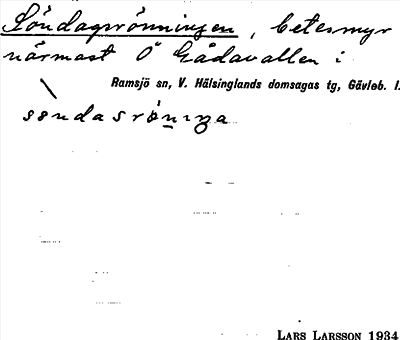 Söndagsrönningen, betesmyr
närmast Ö Gådavallen i
Ramsjö sn, V. Hälsinglands domsagas tg, Gävleb. l.
söndasröninga
LARS LARSSON 1934